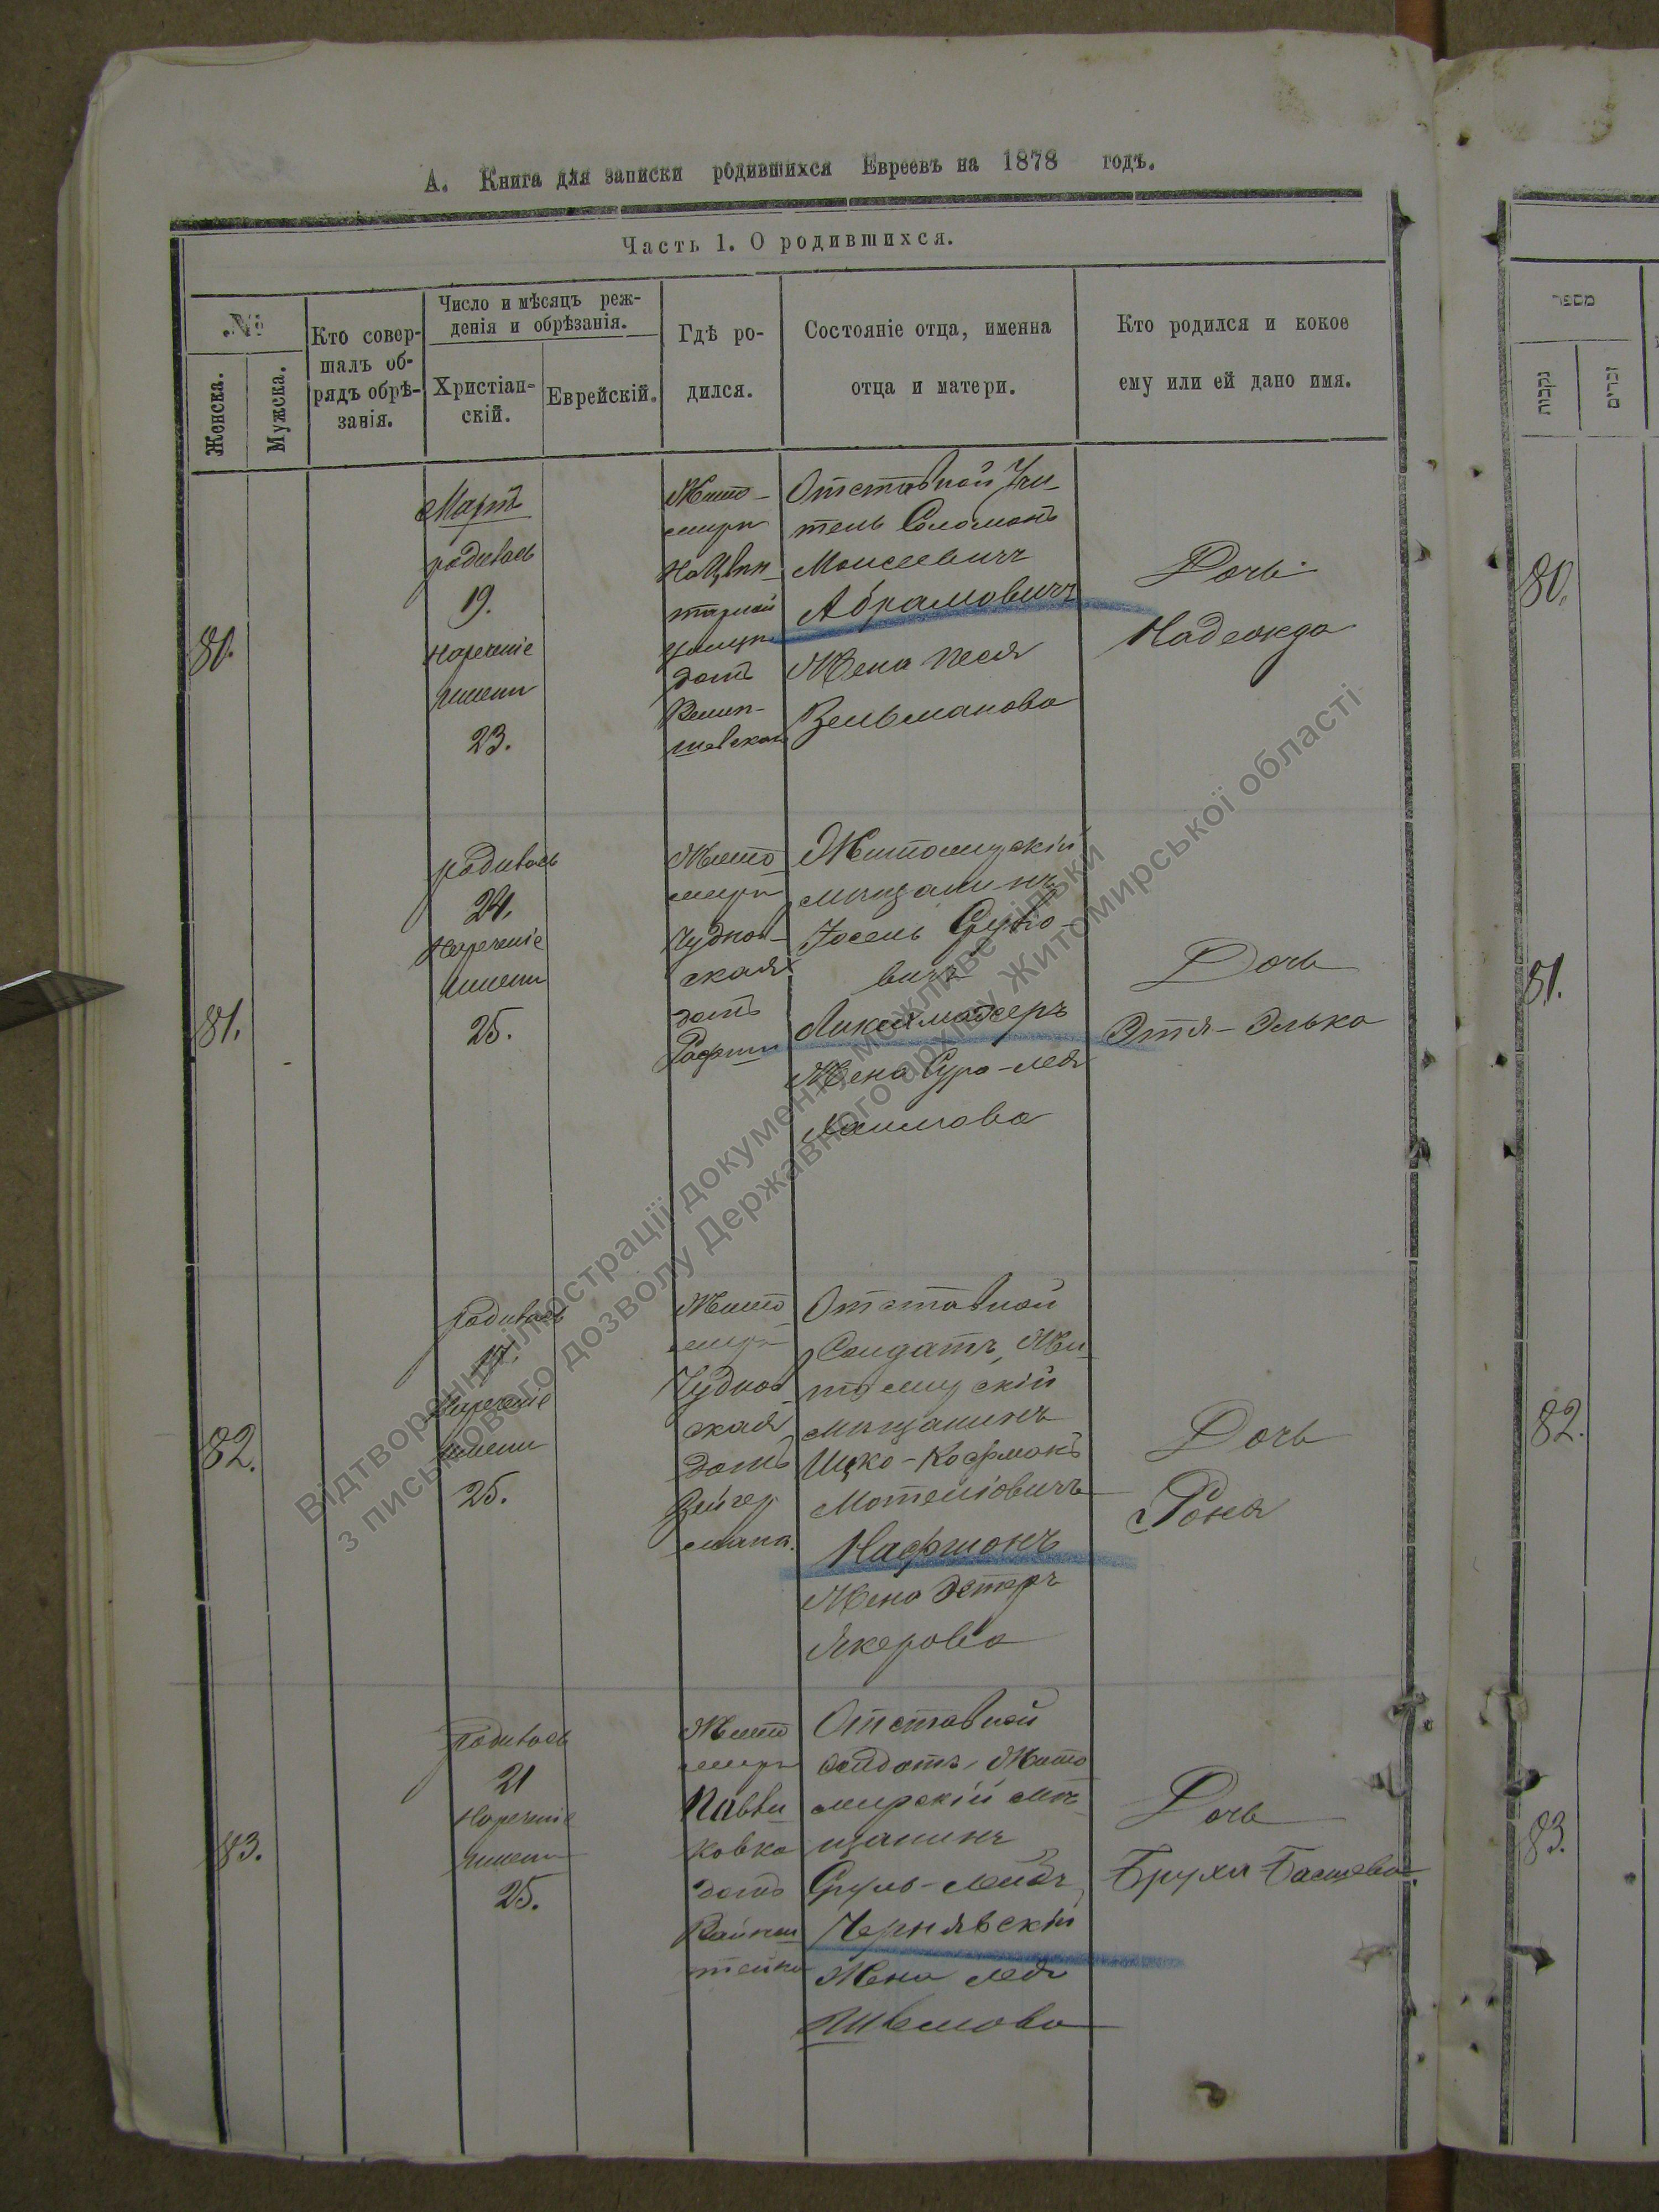 А. Книга для записки родившихся Евреевъ на 1878 годъ.
Часть 1. О родившихся.
№
Женска.
Мужска.
Кто совер-
шалъ об-
рядъ обрѣ-
занія.
Число и мѣсяцъ реж-
денія и обрѣзанія.
Христіан-
скій.
Еврейскій.
Гдѣ ро-
дился.
Состояніе отца, именна
отца и матери.
Кто родился и кокое
ему или ей дано имя.
80.
Мартъ
родилась
19.
Нареченіе
имени
23.
Жито-
миръ
домъ
Отставной Учи-
тель Соломонъ
Моисеевичъ
Абрамовичъ
Жена Песя
Зельманова
Дочь
Надежда
81.
родилась
24.
Нареченіе
имени
25.
Жито
миръ
Чуднов-
ская
домъ
Житомирскій
мѣщанинъ
Іосель
вичъ
Жена Сура-Лея
Дочь
Этя-Элька
82.
родилась
17.
Нареченіе
имени
25.
Жито
миръ
Чуднов
ская
домъ
Зейгер
мана.
Отставной
Солдатъ, Жи-
томирскій
мѣщанинъ
Ицко-Кофманъ
Мотелiовичъ
Жена Эстеръ
Якерова
Дочь
Роня
83.
Родилась
21
Нареченіе
имени
25.
Жито
миръ
Павли-
ковка
домъ
Вайнш
тейна
Отставной
солдатъ, Жито
мирскій мѣ-
щанинъ
Сруль-Лейбъ
Чернявскій
Жена Лея
Шлемова
Дочь
Бруха Басшева.
מספר
נקבות
זכרים
80.
81.
82.
83.
Відтворення ілюстрації документу можливе тільки
з письмового дозволу Державного архіву Житомирської області